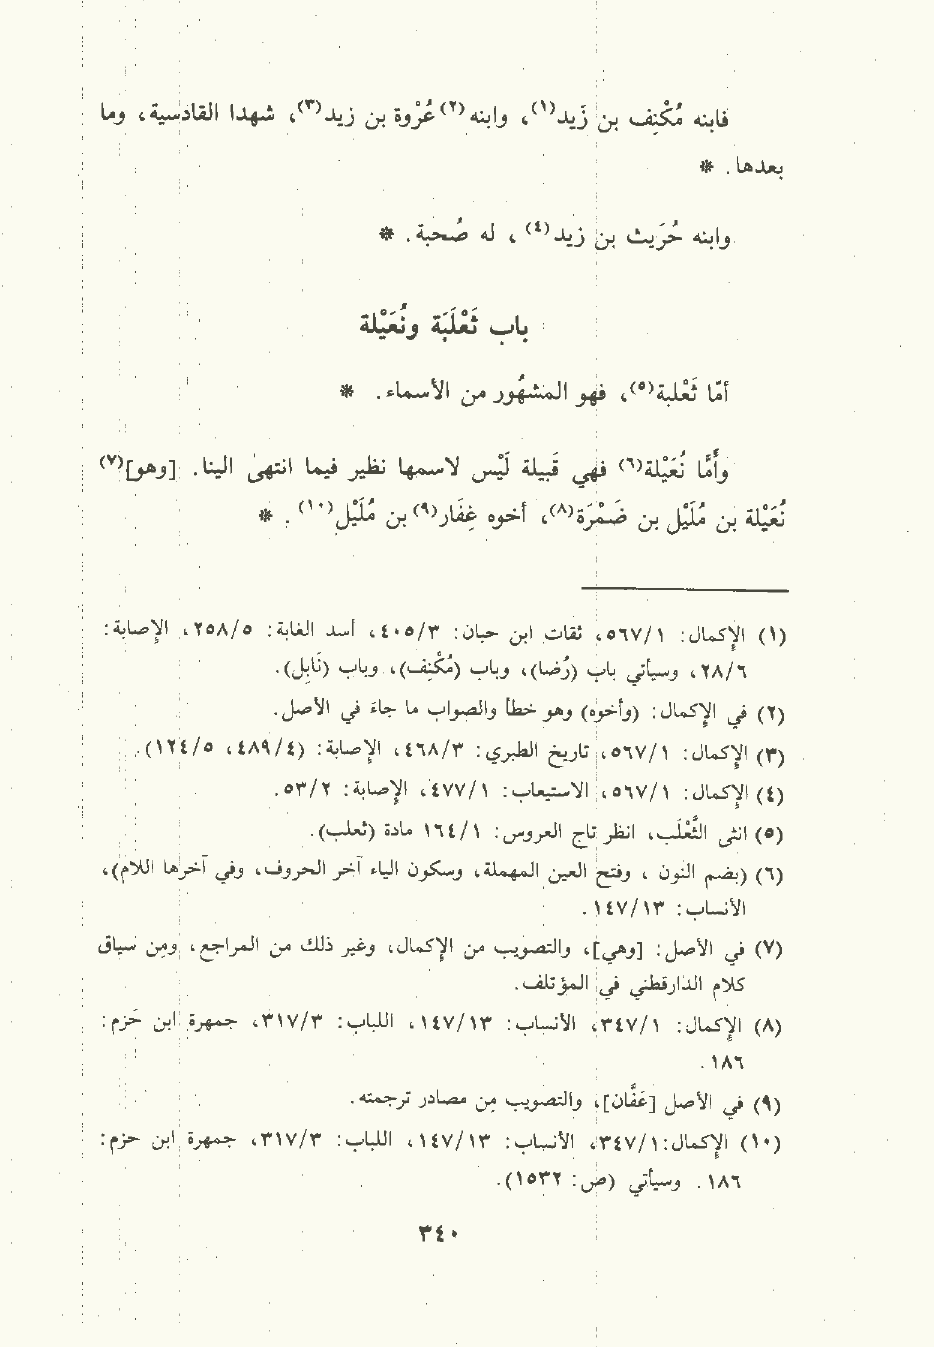 فابنه مُكْنِف بن زَيد(١)، وابنه(٢) عُرْوة بن زيد(٣)، شهدا القادسية، وما
بعدها. *
وابنه حُرَيث بن زيد(٤)، له صُحبة. *
باب ثَعْلَبَة ونُعَيْلة
أمّا ثَعْلبة(٥)، فهو المشهُور من الأسماء. *
وأَمَّا نُعَيْلة(٦) فهي قَبيلة لَيْس لاسمها نظير فيما انتهىٰ الينا. [وهو](٧)
نُعَيْلة بن مُلَيْل بن ضَمْرَة(٨)، أخوه غِفَار(٩) بن مُلَيْل(١٠). *
(١) الإكمال: ٥٦٧/١، ثقات ابن حبان: ٤٠٥/٣، أسد الغابة: ٢٥٨/٥، الإصابة:
٢٨/٦، وسيأتي باب (رُضا)، وباب (مُكْنِف)، وباب (نَابِل).
(٢) في الإكمال: (وأخوه) وهو خطأ والصواب ما جاءَ في الأصل.
(٣) الإكمال: ٥٦٧/١، تاريخ الطبري: ٤٦٨/٣، الإصابة: (٤٨٩/٤، ١٢٤/٥).
(٤) الإكمال: ٥٦٧/١، الاستيعاب: ٤٧٧/١، الإصابة: ٥٣/٢.
(٥) انثى الثَّعْلَب، انظر تاج العروس: ١٦٤/١ مادة (ثعلب).
(٦) (بضم النون ، وفتح العين المهملة، وسكون الياء آخر الحروف، وفي آخرها اللام)،
الأنساب: ١٤٧/١٣.
(٧) في الأصل: [وهي]، والتصويب من الإكمال، وغير ذلك من المراجع، ومِن سياق
كلام الدارقطني في المؤتلف.
(٨) الإكمال: ٣٤٧/١، الأنساب: ١٤٧/١٣، اللباب: ٣١٧/٣، جمهرة ابن حَزم:
١٨٦.
(٩) في الأصل [عَفَّان]، والتصويب مِن مصادر ترجمته.
(١٠) الإكمال: ٣٤٧/١، الأنساب: ١٤٧/١٣، اللباب: ٣١٧/٣، جمهرة ابن حزم:
١٨٦. وسيأتي (ص: ١٥٣٢).
٣٤٠